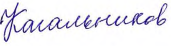 Кагальников